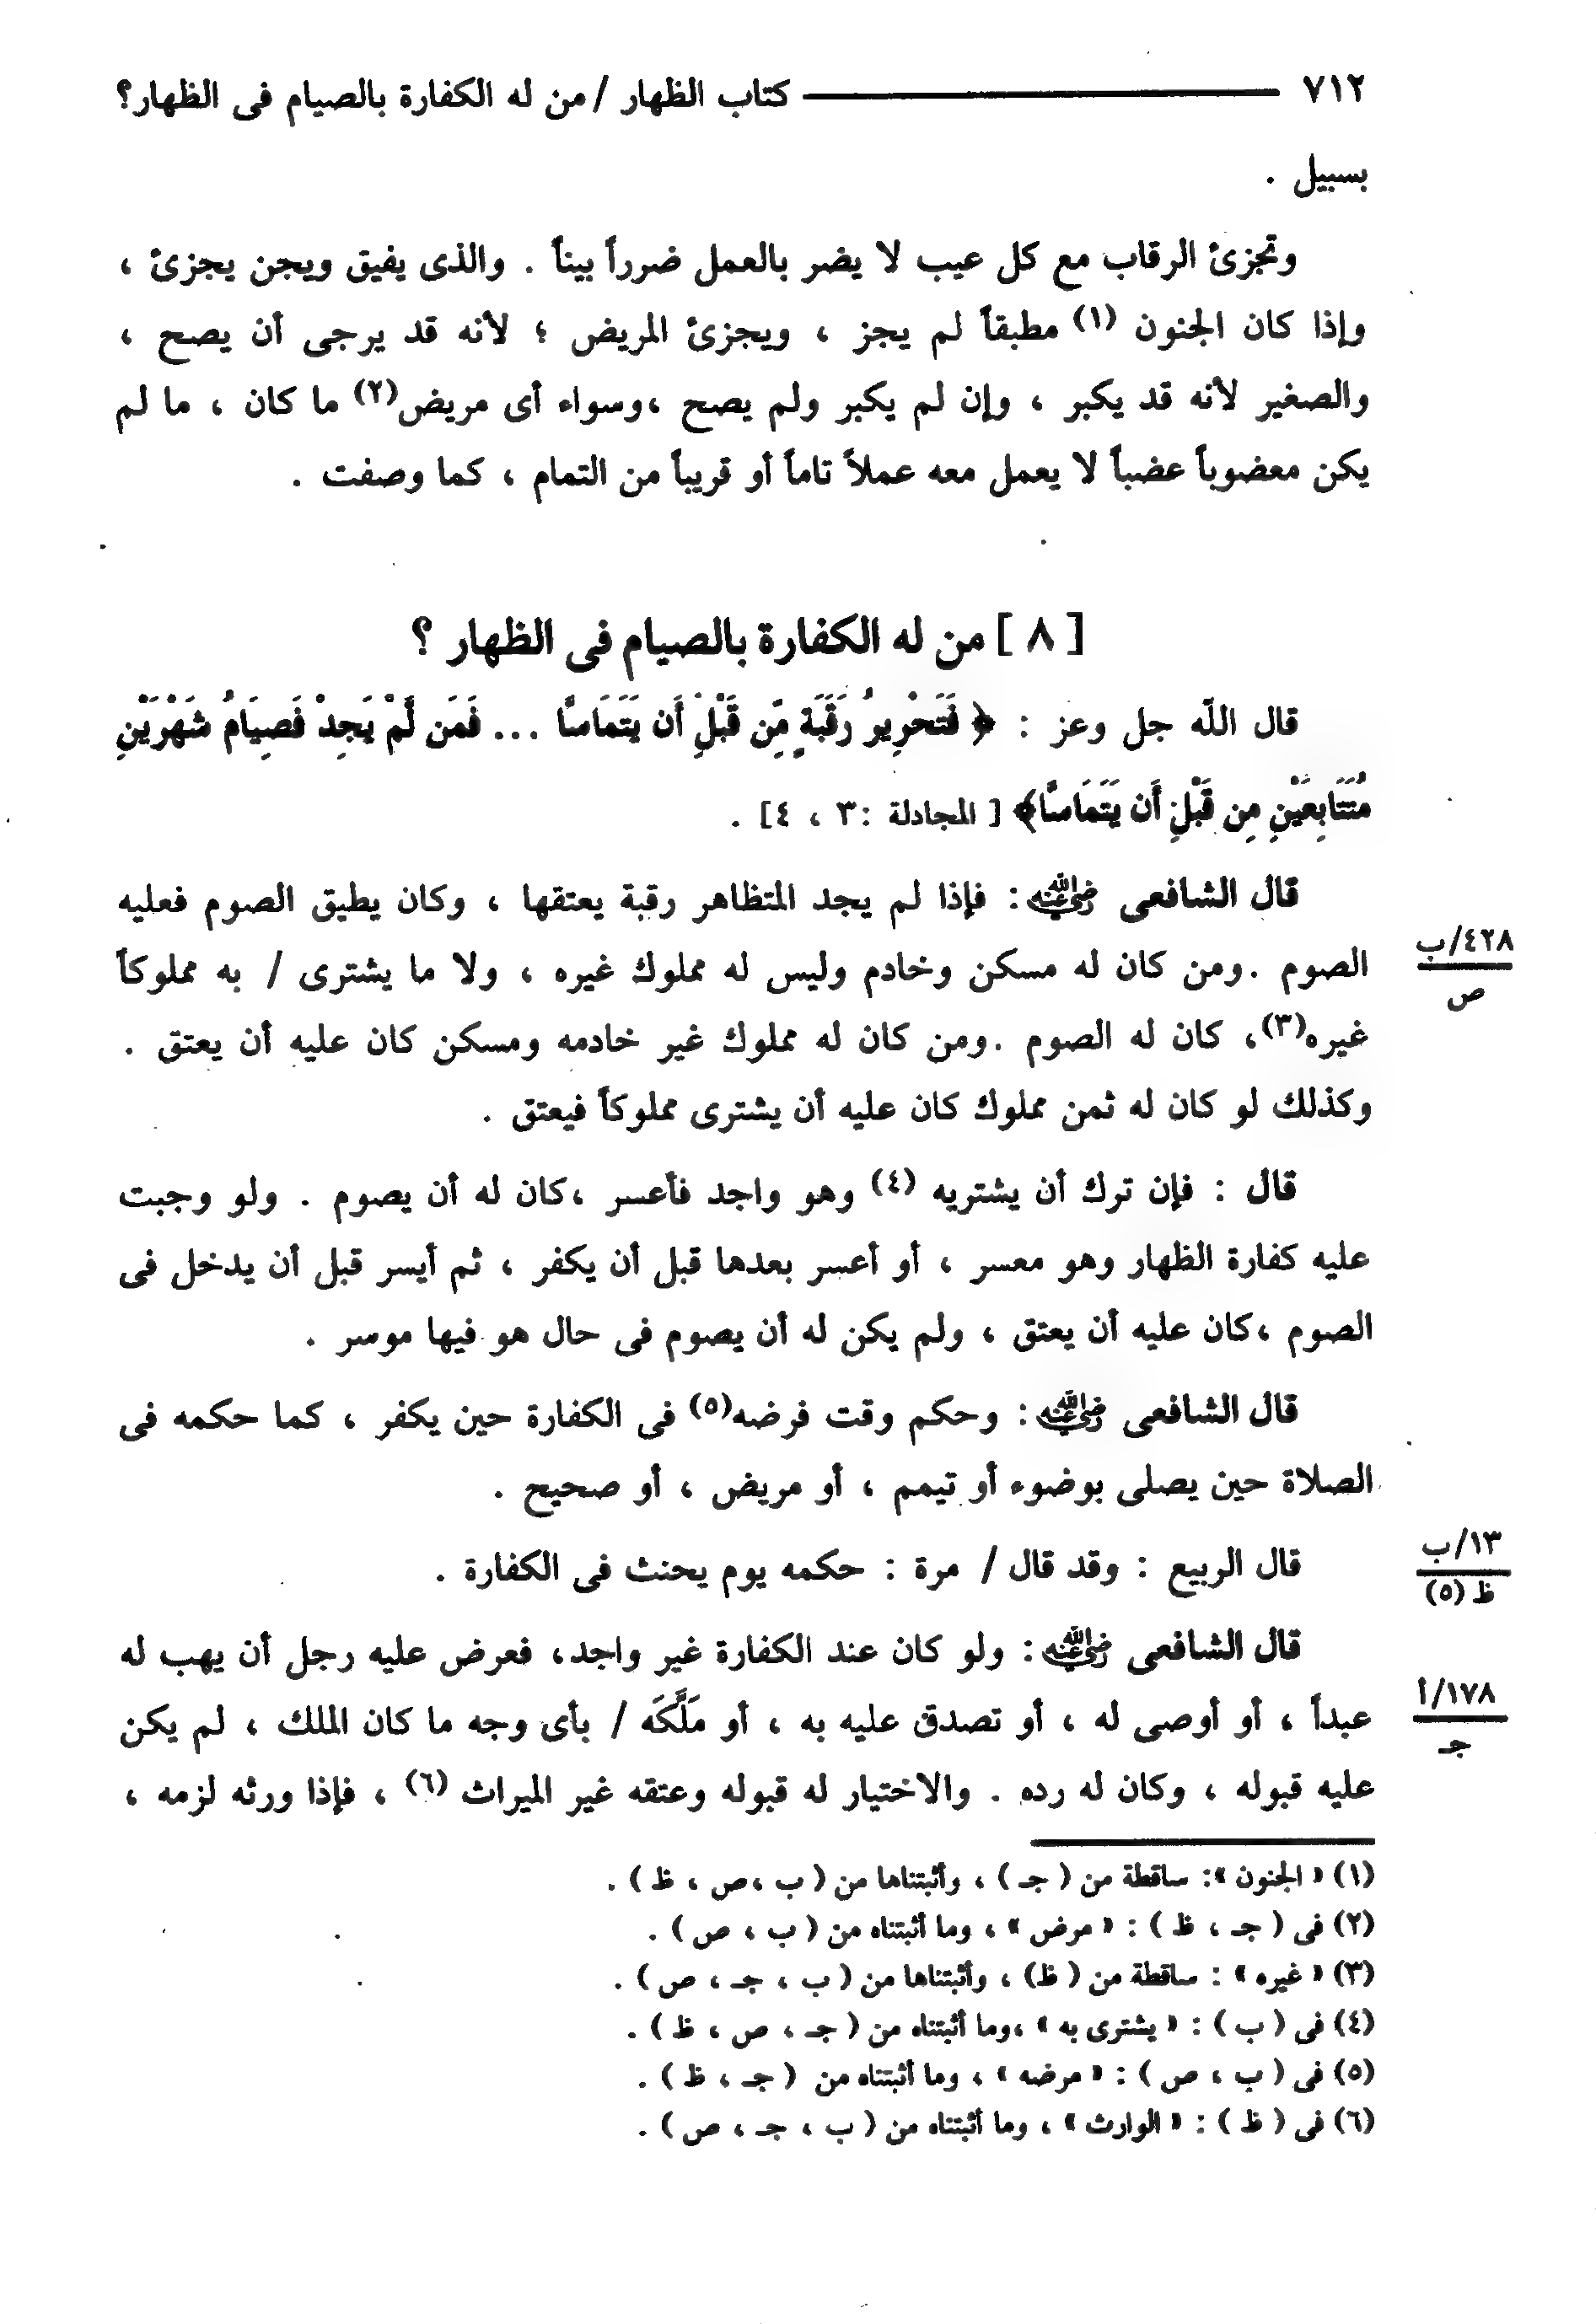 ٧١٢ كتاب الظهار / من له الكفارة بالصيام فى الظهار؟
بسبيل .
وتجزئ الرقاب مع كل عيب لا يضر بالعمل ضرراً بيناً . والذى يفيق ويجن يجزئ ،
وإذا كان الجنون (١) مطبقاً لم يجز ، ويجزئ المريض ؛ لأنه قد يرجى أن يصح ،
والصغير لأنه قد يكبر ، وإن لم يكبر ولم يصح ،وسواء أى مريض(٢) ما كان ، ما لم
يكن معضوباً عضباً لا يعمل معه عملاً تاماً أو قريباً من التمام ، كما وصفت .
[ ٨ ] من له الكفارة بالصيام فى الظهار ؟
قال اللّه جل وعز : ﴿ فَتَحْرِيرُ رَقَبَةٍ مِّن قَبْلِ أَن يَتَمَاسَّا ... فَمَن لَّمْ يَجِدْ فَصِيَامُ شَهْرَيْنِ
مُتَتَابِعَيْنِ مِن قَبْلِ أَن يَتَمَاسَّا﴾ [ المجادلة :٣ ، ٤] .
قال الشافعى رضي الله عنه : فإذا لم يجد المتظاهر رقبة يعتقها ، وكان يطيق الصوم فعليه
الصوم .ومن كان له مسكن وخادم وليس له مملوك غيره ، ولا ما يشترى / به مملوكاً
٤٢٨/ب
ص
غيره(٣)، كان له الصوم .ومن كان له مملوك غير خادمه ومسكن كان عليه أن يعتق .
وكذلك لو كان له ثمن مملوك كان عليه أن يشترى مملوكاً فيعتق .
قال : فإن ترك أن يشتريه (٤) وهو واجد فأعسر ،كان له أن يصوم . ولو وجبت
عليه كفارة الظهار وهو معسر ، أو أعسر بعدها قبل أن يكفر ، ثم أيسر قبل أن يدخل فى
الصوم ،كان عليه أن يعتق ، ولم يكن له أن يصوم فى حال هو فيها موسر .
قال الشافعى رضي الله عنه : وحكم وقت فرضه(٥) فى الكفارة حين يكفر ، كما حكمه فى
الصلاة حين يصلى بوضوء أو تيمم ، أو مريض ، أو صحيح .
قال الربيع : وقد قال / مرة : حكمه يوم يحنث فى الكفارة .
١٣/ب
ظ (٥)
قال الشافعى رضي الله عنه : ولو كان عند الكفارة غير واجد، فعرض عليه رجل أن يهب له
عبداً ، أو أوصى له ، أو تصدق عليه به ، أو مَلَّكَه / بأى وجه ما كان الملك ، لم يكن
١٧٨/أ
جـ
عليه قبوله ، وكان له رده . والاختيار له قبوله وعتقه غير الميراث (٦) ، فإذا ورثه لزمه ،
(١) « الجنون »: ساقطة من ( جـ ) ، وأثبتناها من ( ب ،ص ، ظ ) .
(٢) فى ( جـ ، ظ ) : « مرض » ، وما أثبتناه من ( ب ، ص ) .
(٣) « غيره » : ساقطة من ( ظ) ، وأثبتناها من ( ب ، جـ ، ص ) .
(٤) فى ( ب ) : « يشترى به » ،وما أثبتناه من ( جـ ، ص ، ظ ) .
(٥) فى ( ب ، ص ) : « مرضه » ، وما أثبتناه من ( جـ ، ظ ) .
(٦) فى ( ظ ) : « الوارث » ، وما أثبتناه من ( ب ، جـ ، ص ) .